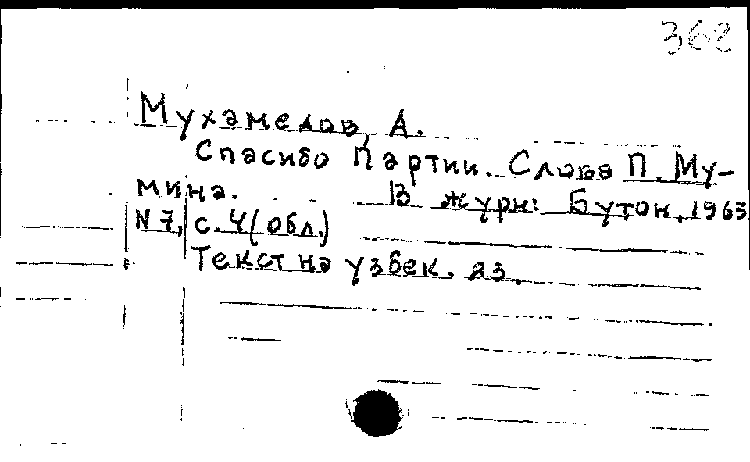 362
Мухамедов, А.
Спасибо Партии. Слова П. Му-
мина. В журн: Бутон, 1963
N 7, с. 4 (обл.)
Текст на узбек. яз.